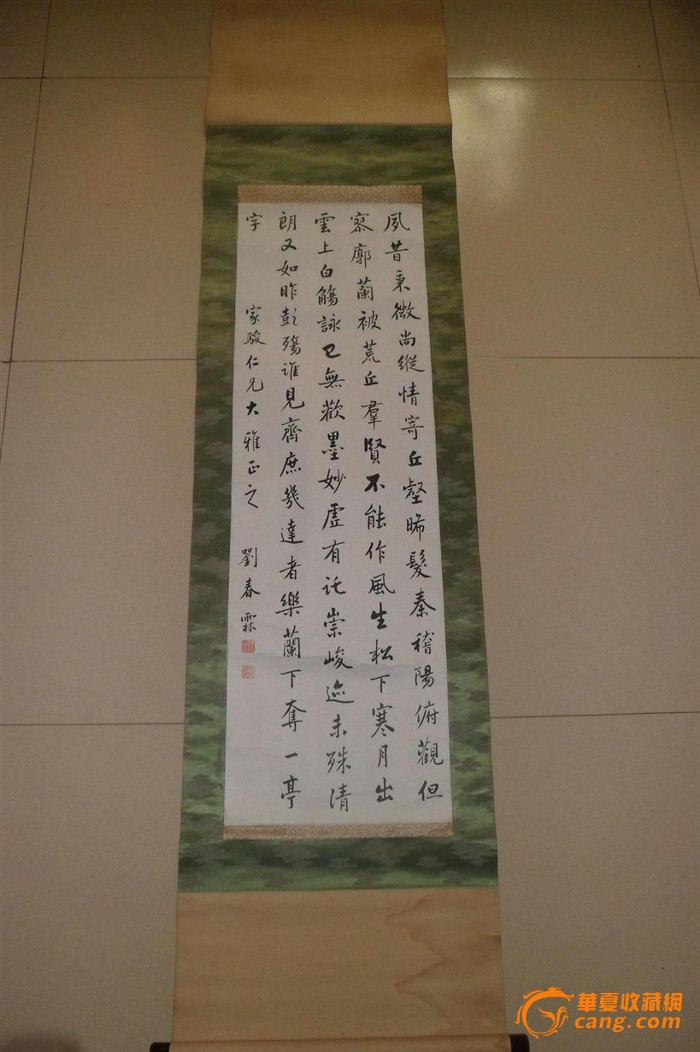 夙昔秉微尚縱情寄丘壑晞髮秦稽陽俯觀但
寥廓蘭被荒丘羣賢不能作風生松下寒月出
雲上白觴詠已無歡墨妙虛有託崇峻迹未殊清
朗又如昨彭殤誰見齊庶幾達者樂蘭下奪一亭
字 家駿仁兄大雅正之 劉春霖
華夏收藏網
cang.com